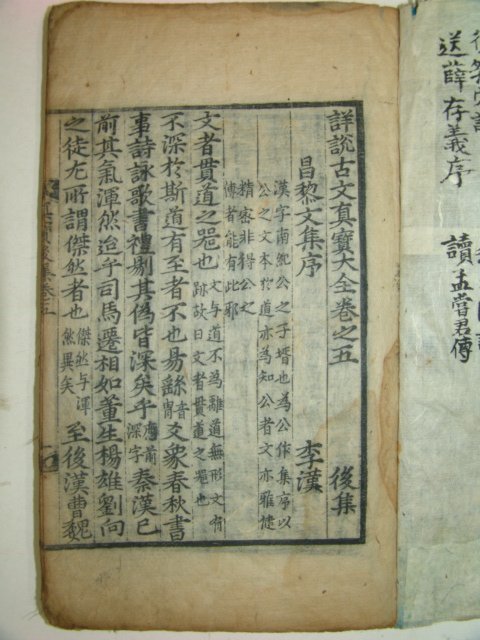 送薛存義序
讀孟嘗君傳
詳說古文真寶大全卷之五 後集
昌黎文集序 李漢
漢字南紀公之子壻也為公作集序以
公之文本於道亦為知公者文亦雅健
精密非得公之
傳者能有此邪
文者貫道之器也 文与道不為離道無形文有
跡故曰文者貫道之器也
不深於斯道有至者不也易繇 音胄 爻象春秋書
事詩詠歌書禮剔其偽皆深矣乎 應前深字 秦漢已
前其氣渾然迨乎司馬遷相如董生楊雄劉向
之徒尤所謂傑然者也 傑然与渾然異矣 至後漢曹魏